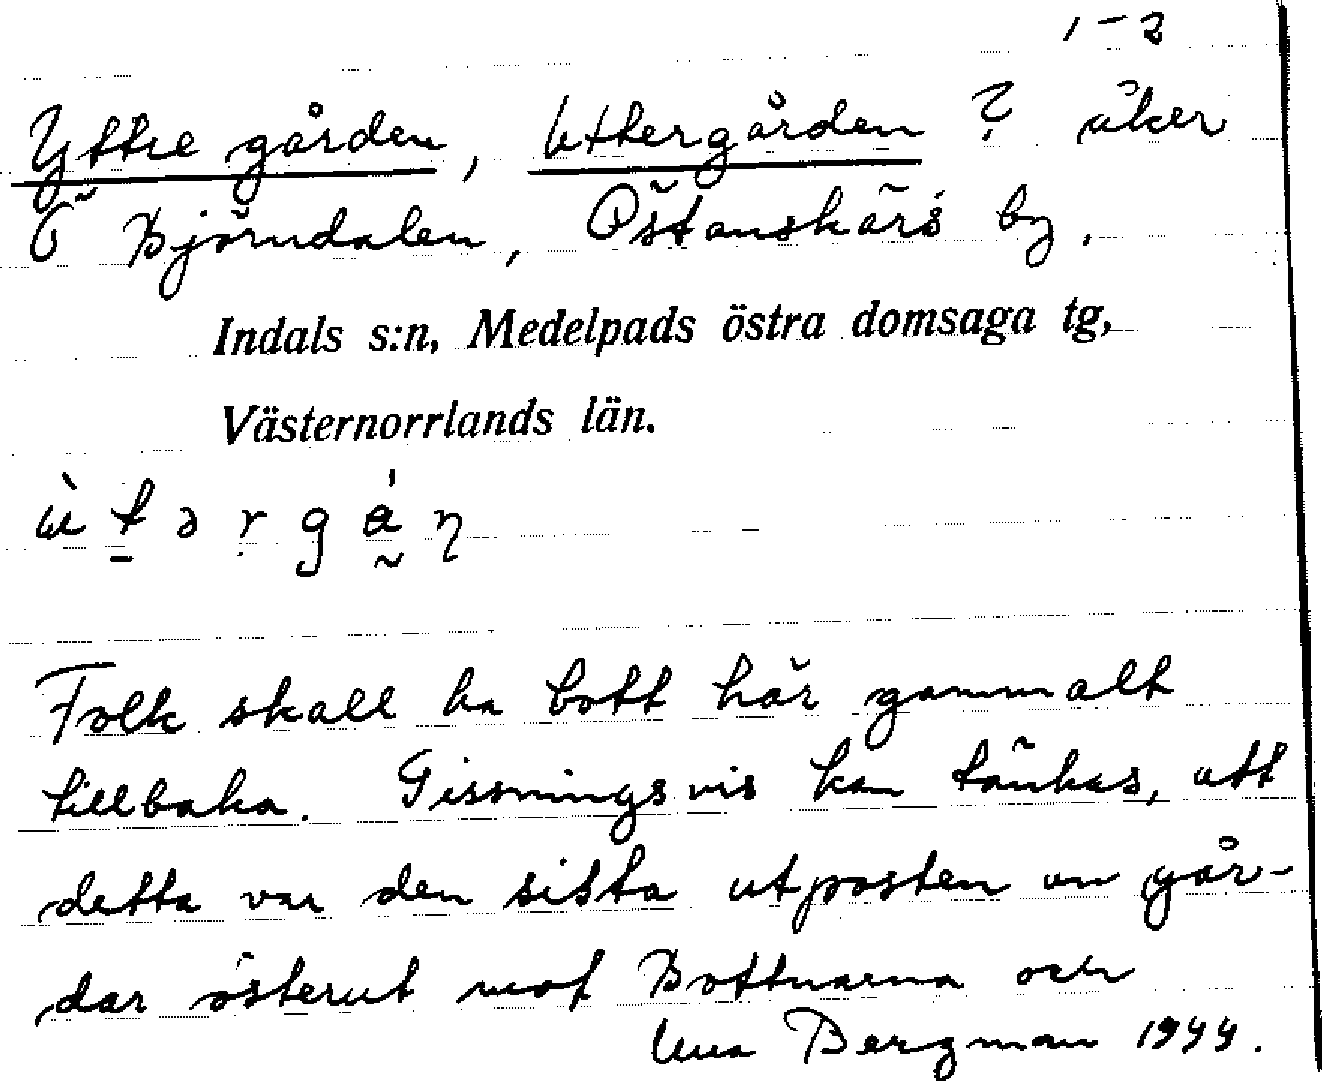 1-2
Yttre gården, Uttergården? åker
Ö Björndalen, Östanskärs by,
Indals s:n, Medelpads östra domsaga tg,
Västernorrlands län.
Folk skall ha bott här gammalt
tillbaka. Gissningsvis kan tänkas, att
detta var den sista utposten av går-
dar österut mot Bottnarna och
Una Bergman 1944.